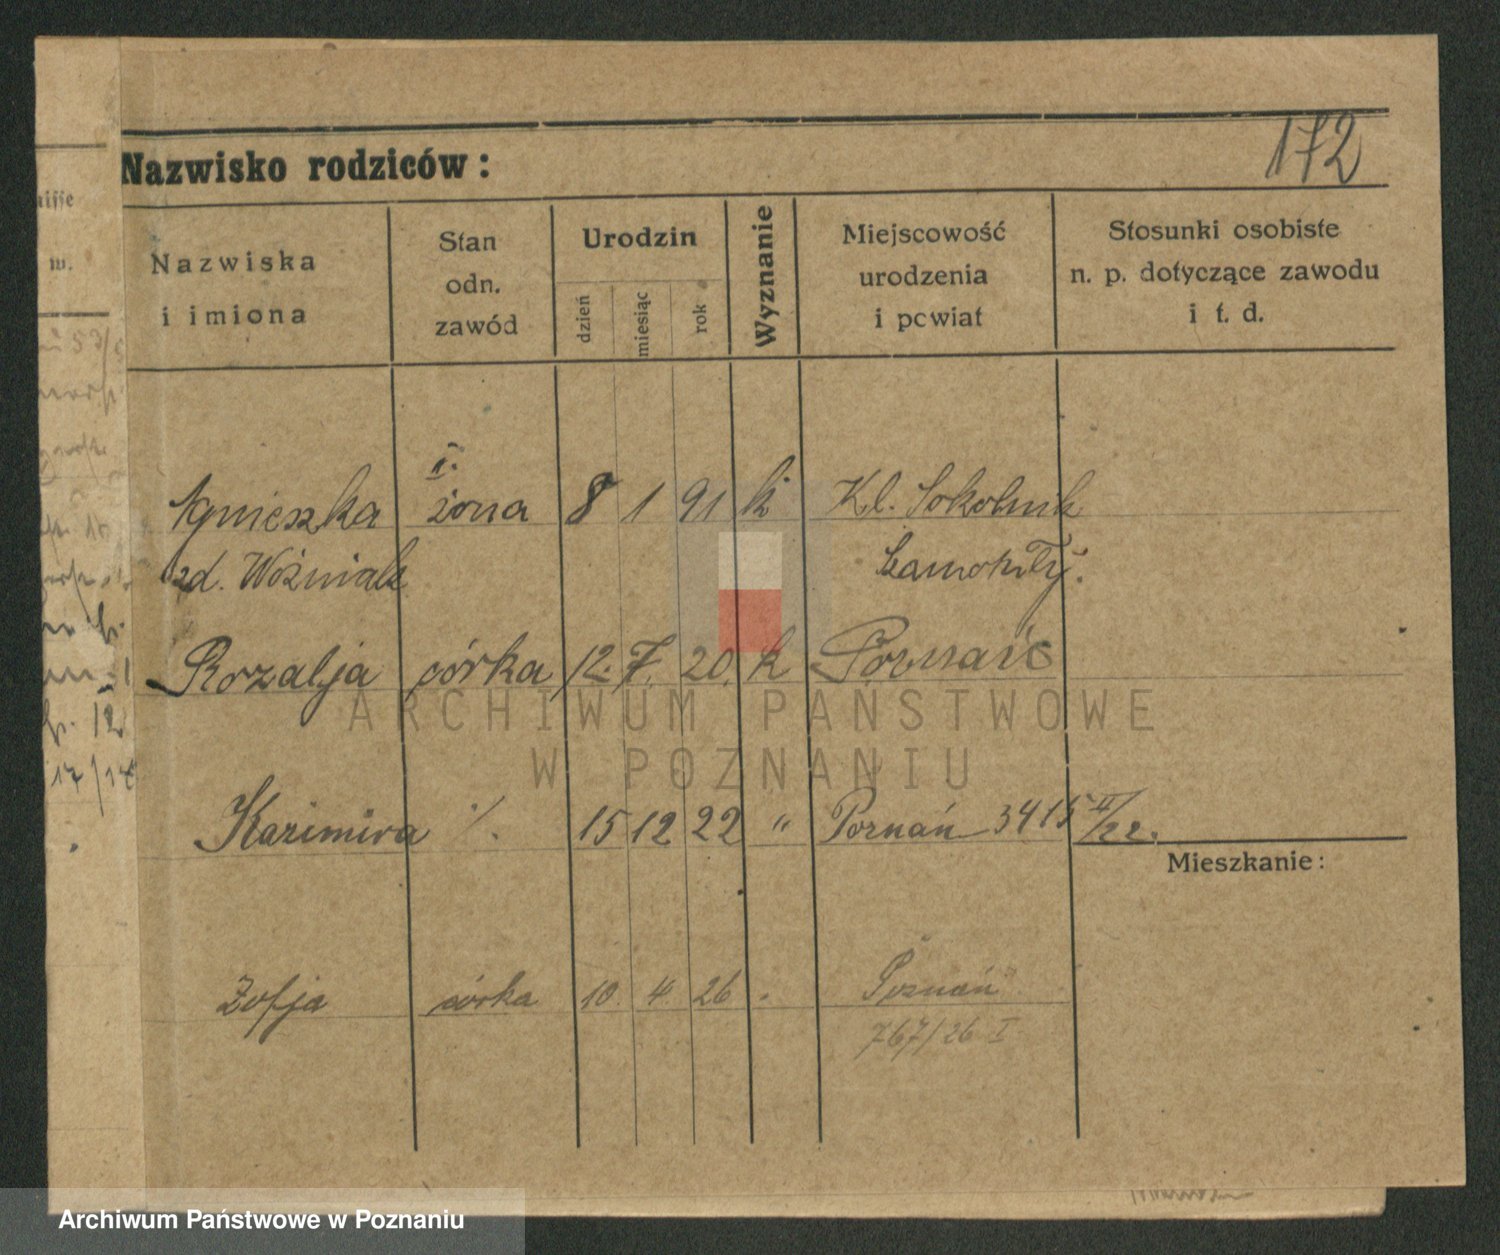 172
Nazwisko rodziców:
Nazwiska
i imiona
Stan
odn.
zawód
Urodzin
dzień
miesiąc
rok
Wyznanie
Miejscowość
urodzenia
i powiat
Stosunki osobiste
n. p. dotyczące zawodu
i t. d.
II.
Agnieszka żona 8 1 91 k Kl. Sokolnik
zd. Woźniak Szamotuły.
Rozalja córka 12. 7. 20. k Poznań
Kazimira ./. 15 12 22 " Poznań 3415 II/22.
Mieszkanie:
Zofja córka 10. 4. 26 Poznań
767/26 I
12
17/18
ARCHIWUM PAŃSTWOWE
W POZNANIU
Archiwum Państwowe w Poznaniu